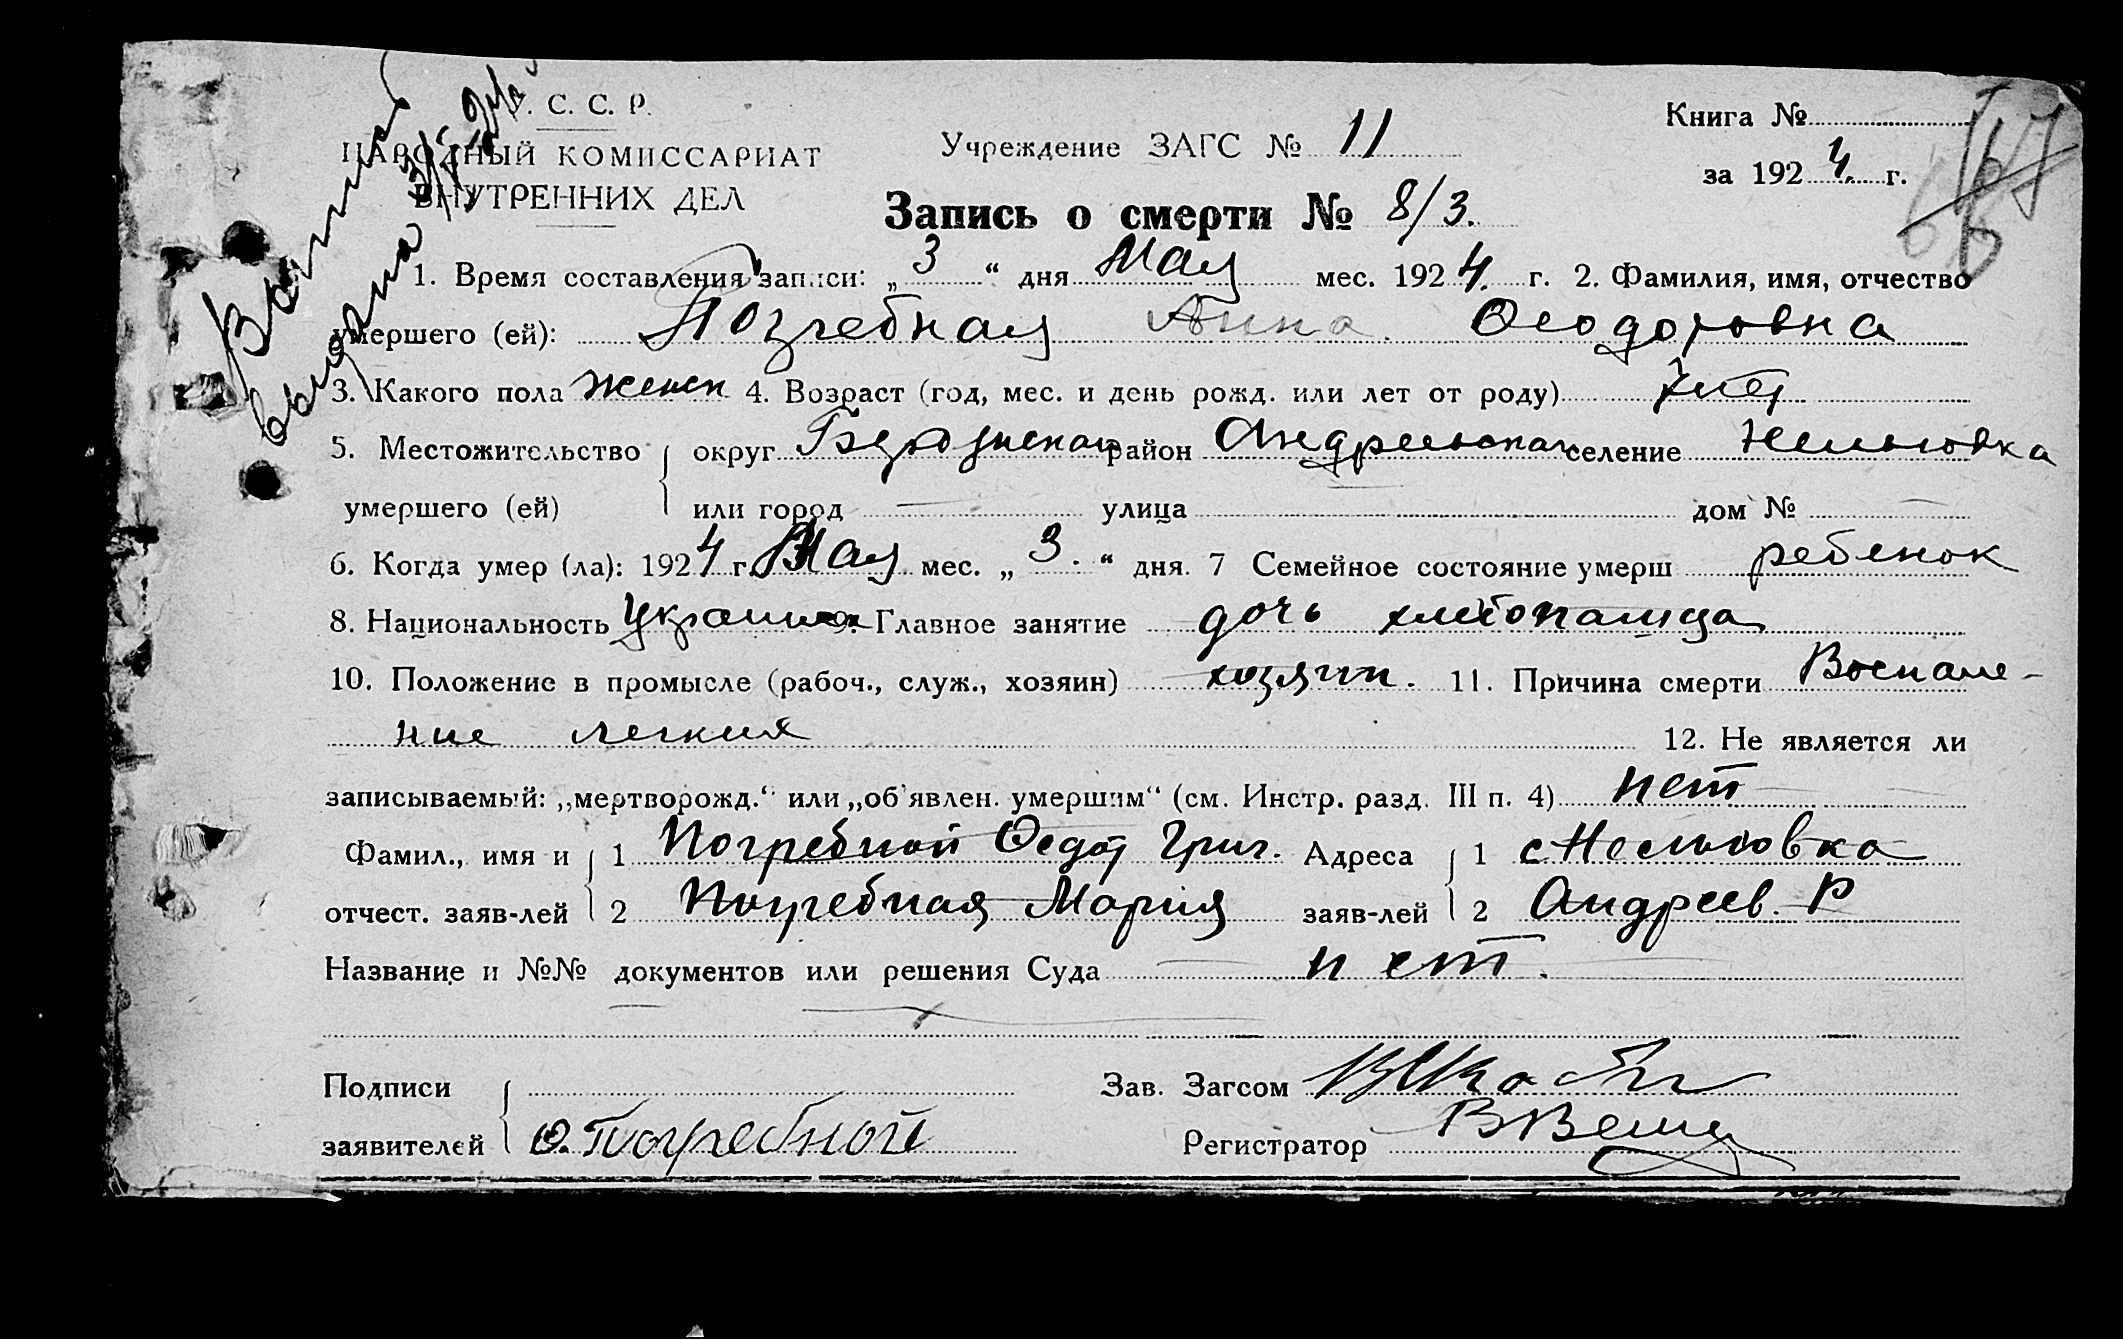 У. С. С. Р.
НАРОДНЫЙ КОМИССАРИАТ
ВНУТРЕННИХ ДЕЛ
Учреждение ЗАГС № 11
Книга №
за 1924 г.
Запись о смерти № 8/3.
1. Время составления записи: „3“ дня Мая мес. 1924. г. 2. Фамилия, имя, отчество
умершего (ей): Погребная Анна Феодоровна
3. Какого пола женск 4. Возраст (год, мес. и день рожд. или лет от роду)
5. Местожительство округ район Андреевска селение Нельговка
умершего (ей) или город улица дом №
6. Когда умер (ла): 1924 г. Мая мес. „3.“ дня. 7 Семейное состояние умерш ребенок
8. Национальность 9. Главное занятие дочь хлебопашца
10. Положение в промысле (рабоч., служ., хозяин) хозяин. 11. Причина смерти Воспале-
ние легких 12. Не является ли
записываемый: „мертворожд.“ или „об'явлен. умершим“ (см. Инстр. разд. III п. 4) нет
Фамил., имя и 1 Погребной Федор Григ. Адреса 1 с Нельговка
отчест. заяв-лей 2 Погребная Мария заяв-лей 2 Андреев. Р
Название и №№ документов или решения Суда нет.
Подписи Зав. Загсом
заявителей Ф. Погребной Регистратор